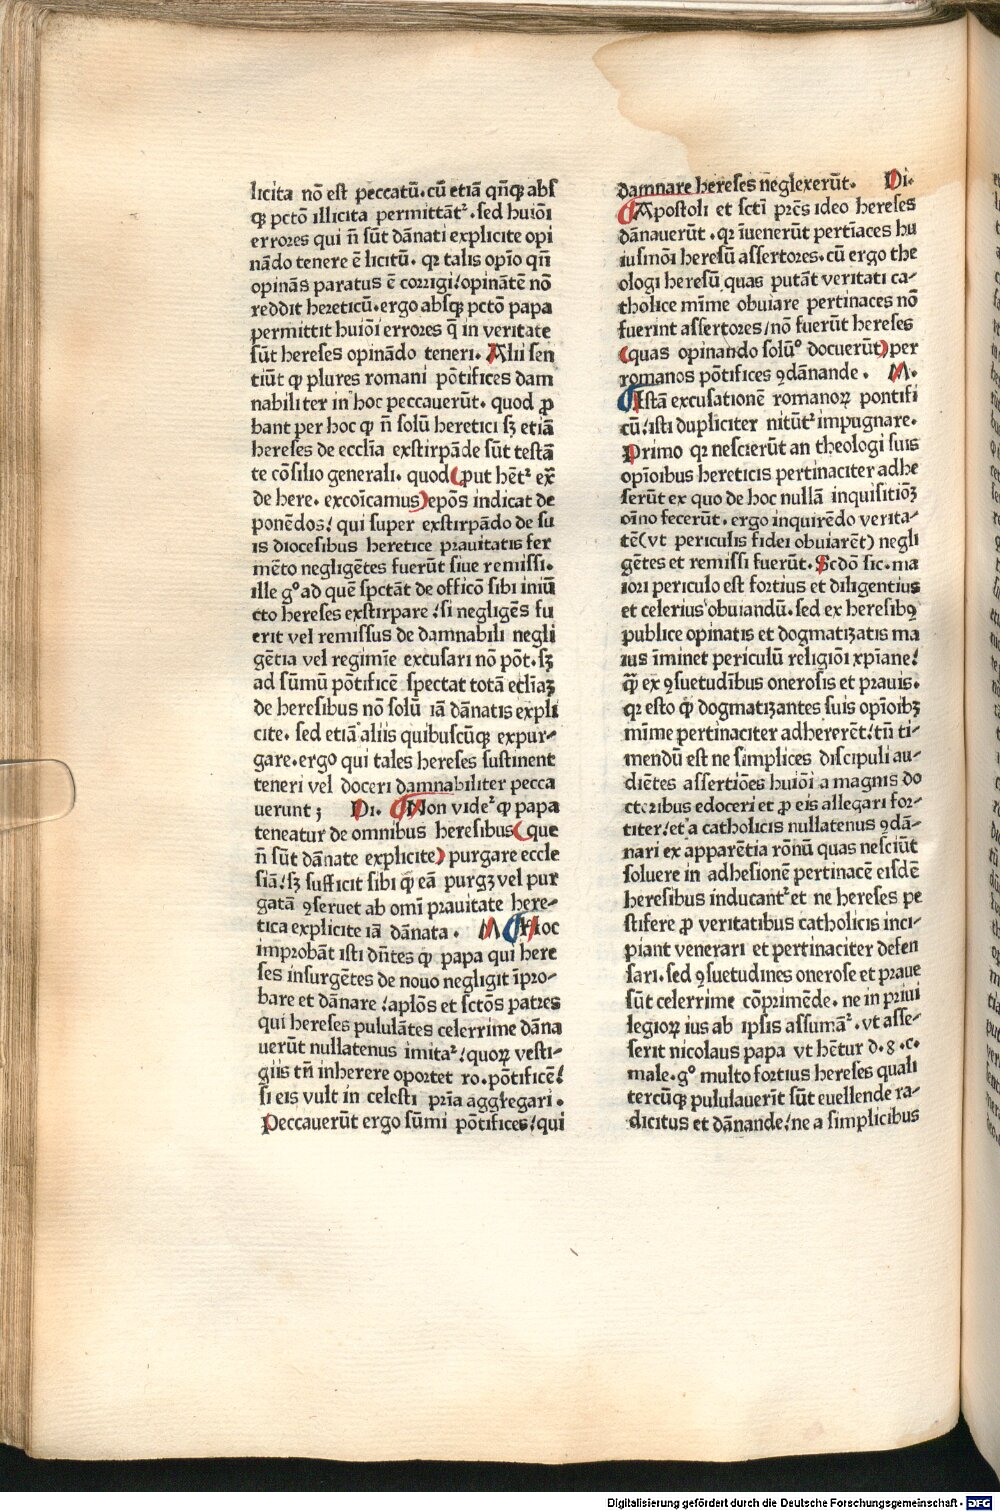 licita nō est peccatū. cū etiā qñꝗ abſ
ꝗ pctō illicita permittāt᷑. sed huiōi
errores qui ñ sūt dānati explicite opi
nādo tenere ē licitū. qꝛ talis opīo qñ
opinās paratus ē corrigi/ opinātē nō
reddit hereticū. ergo absꝗ pctō papa
permittit huiōi errores q̄ in veritate
sūt hereses opinādo teneri. Alii sen
tiūt ꝙ plures romani pōtifices dam
nabiliter in hoc peccauerūt. quod ꝓ
bant per hoc ꝙ ñ solū heretici sꝫ etiā
hereses de ecclīa exstirpāde sūt testā
te cōsilio generali. quod (put hēt᷑ ex̄
de here. excoīcamus) epōs indicat de
ponēdos/ qui super exstirpādo de su
is diocesibus heretice prauitatis fer
mēto negligētes fuerūt siue remissi.
ille gͦ ad quē spctāt de officō sibi iniū
cto hereses exstirpare/ si negligēs fu
erit vel remissus de damnabili negli
gētia vel regimīe excusari nō pōt. sꝫ
ad sūmū pōtificē spectat totā ecl̄iaꝫ
de heresibus nō solū iā dānatis expli
cite. sed etiā aliis quibuscūꝗ expur⸗
gare. ergo qui tales hereses sustinent
teneri vel doceri damnabiliter pecca
uerunt; Di. Non vide᷑ ꝙ papa
teneatur de omnibus heresibus (que
ñ sūt dānate explicite) purgare eccle
siā/ sꝫ sufficit sibi ꝙ eā purgꝫ vel pur
gatā ꝯseruet ab omī prauitate here⸗
tica explicite iā dānata. M Hoc
improbāt isti dn̄tes ꝙ papa qui here
ses insurgētes de nouo negligit īpro⸗
bare et dānare/ aplōs et sctōs patres
qui hereses pululātes celerrime dāna
uerūt nullatenus imita᷑/ quoꝝ vesti⸗
giis tn̄ inherere oportet ro. pōtificē/
si eis vult in celesti pr̄ia aggregari.
Peccauerūt ergo sūmi pōtifices/ qui
damnare hereses neglexerūt. Di.
Apostoli et sctī pr̄es ideo hereses
dānauerūt. qꝛ īuenerūt pertīaces hu
iusmōi heresū assertores. cū ergo the
ologi heresū quas putāt veritati ca⸗
tholice mīme obuiare pertinaces nō
fuerint assertores/ nō fuerūt hereses
(quas opinando solūͦ docuerūt) per
romanos pōtifices ꝯdānande. M.
Istā excusationē romanoꝝ pontifi
cū/ isti dupliciter nitūt᷑ impugnare.
Primo qꝛ nescierūt an theologi suis
opīoibus hereticis pertinaciter adhe
serūt ex quo de hoc nullā inquisitiōꝫ
oīno fecerūt. ergo inquirēdo verita⸗
tē (vt periculis fidei obuiarēt) negli
gētes et remissi fuerūt. Scdō sic. ma
iori periculo est fortius et diligentius
et celerius obuiandū. sed ex heresibꝰ
publice opinatis et dogmatiꝫatis ma
ius īminet periculū religiōi xp̄iane/
ꝙ̄ ex ꝯsuetudībus onerosis et prauis.
qꝛ esto ꝙ dogmatizantes suis opīoibꝫ
mīme pertinaciter adhererēt/ tn̄ ti⸗
mendū est ne simplices discipuli au⸗
diētes assertiōes huiōi a magnis do
ctoribus edoceri et ꝓ eis allegari for⸗
titer/ et a catholicis nullatenus ꝯdā⸗
nari ex apparētia rōnū quas nesciūt
soluere in adhesionē pertinacē eisdē
heresibus inducant᷑ et ne hereses pe
stifere ꝓ veritatibus catholicis inci⸗
piant venerari et pertinaciter defen
sari. sed ꝯsuetudines onerose et praue
sūt celerrime cōprimēde. ne in priui
legioꝝ ius ab ipsis assumā᷑. vt asse⸗
serit nicolaus papa vt hētur d. 8. c.
male. gͦ multo fortius hereses quali
tercūꝗ pululauerīt sūt euellende ra⸗
dicitus et dānande/ ne a simplicibus
Digitalisierung gefördert durch die Deutsche Forschungsgemeinschaft - DFG